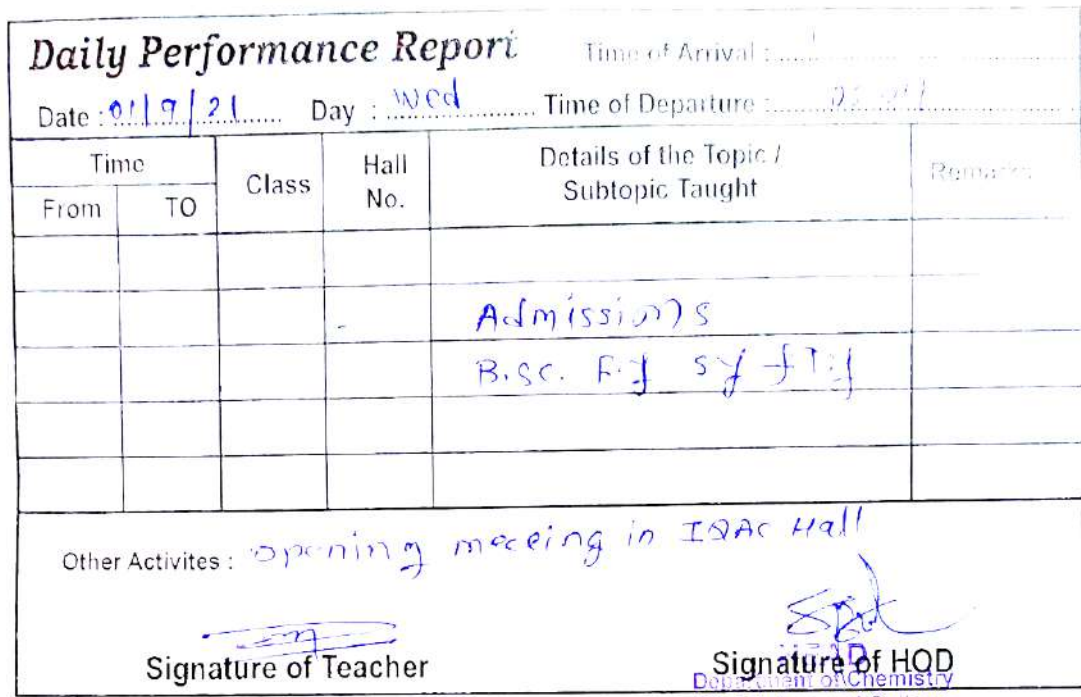 Daily Performance Report Time of Arrival :
Date : 01/9/21 Day : Wed Time of Departure :
Time Class Hall No. Details of the Topic / Subtopic Taught Remarks
From TO
Admissions
B.Sc. F.Y SY
Other Activites : opening meeting in IQAC Hall
Signature of Teacher Signature of HOD
Department of Chemistry